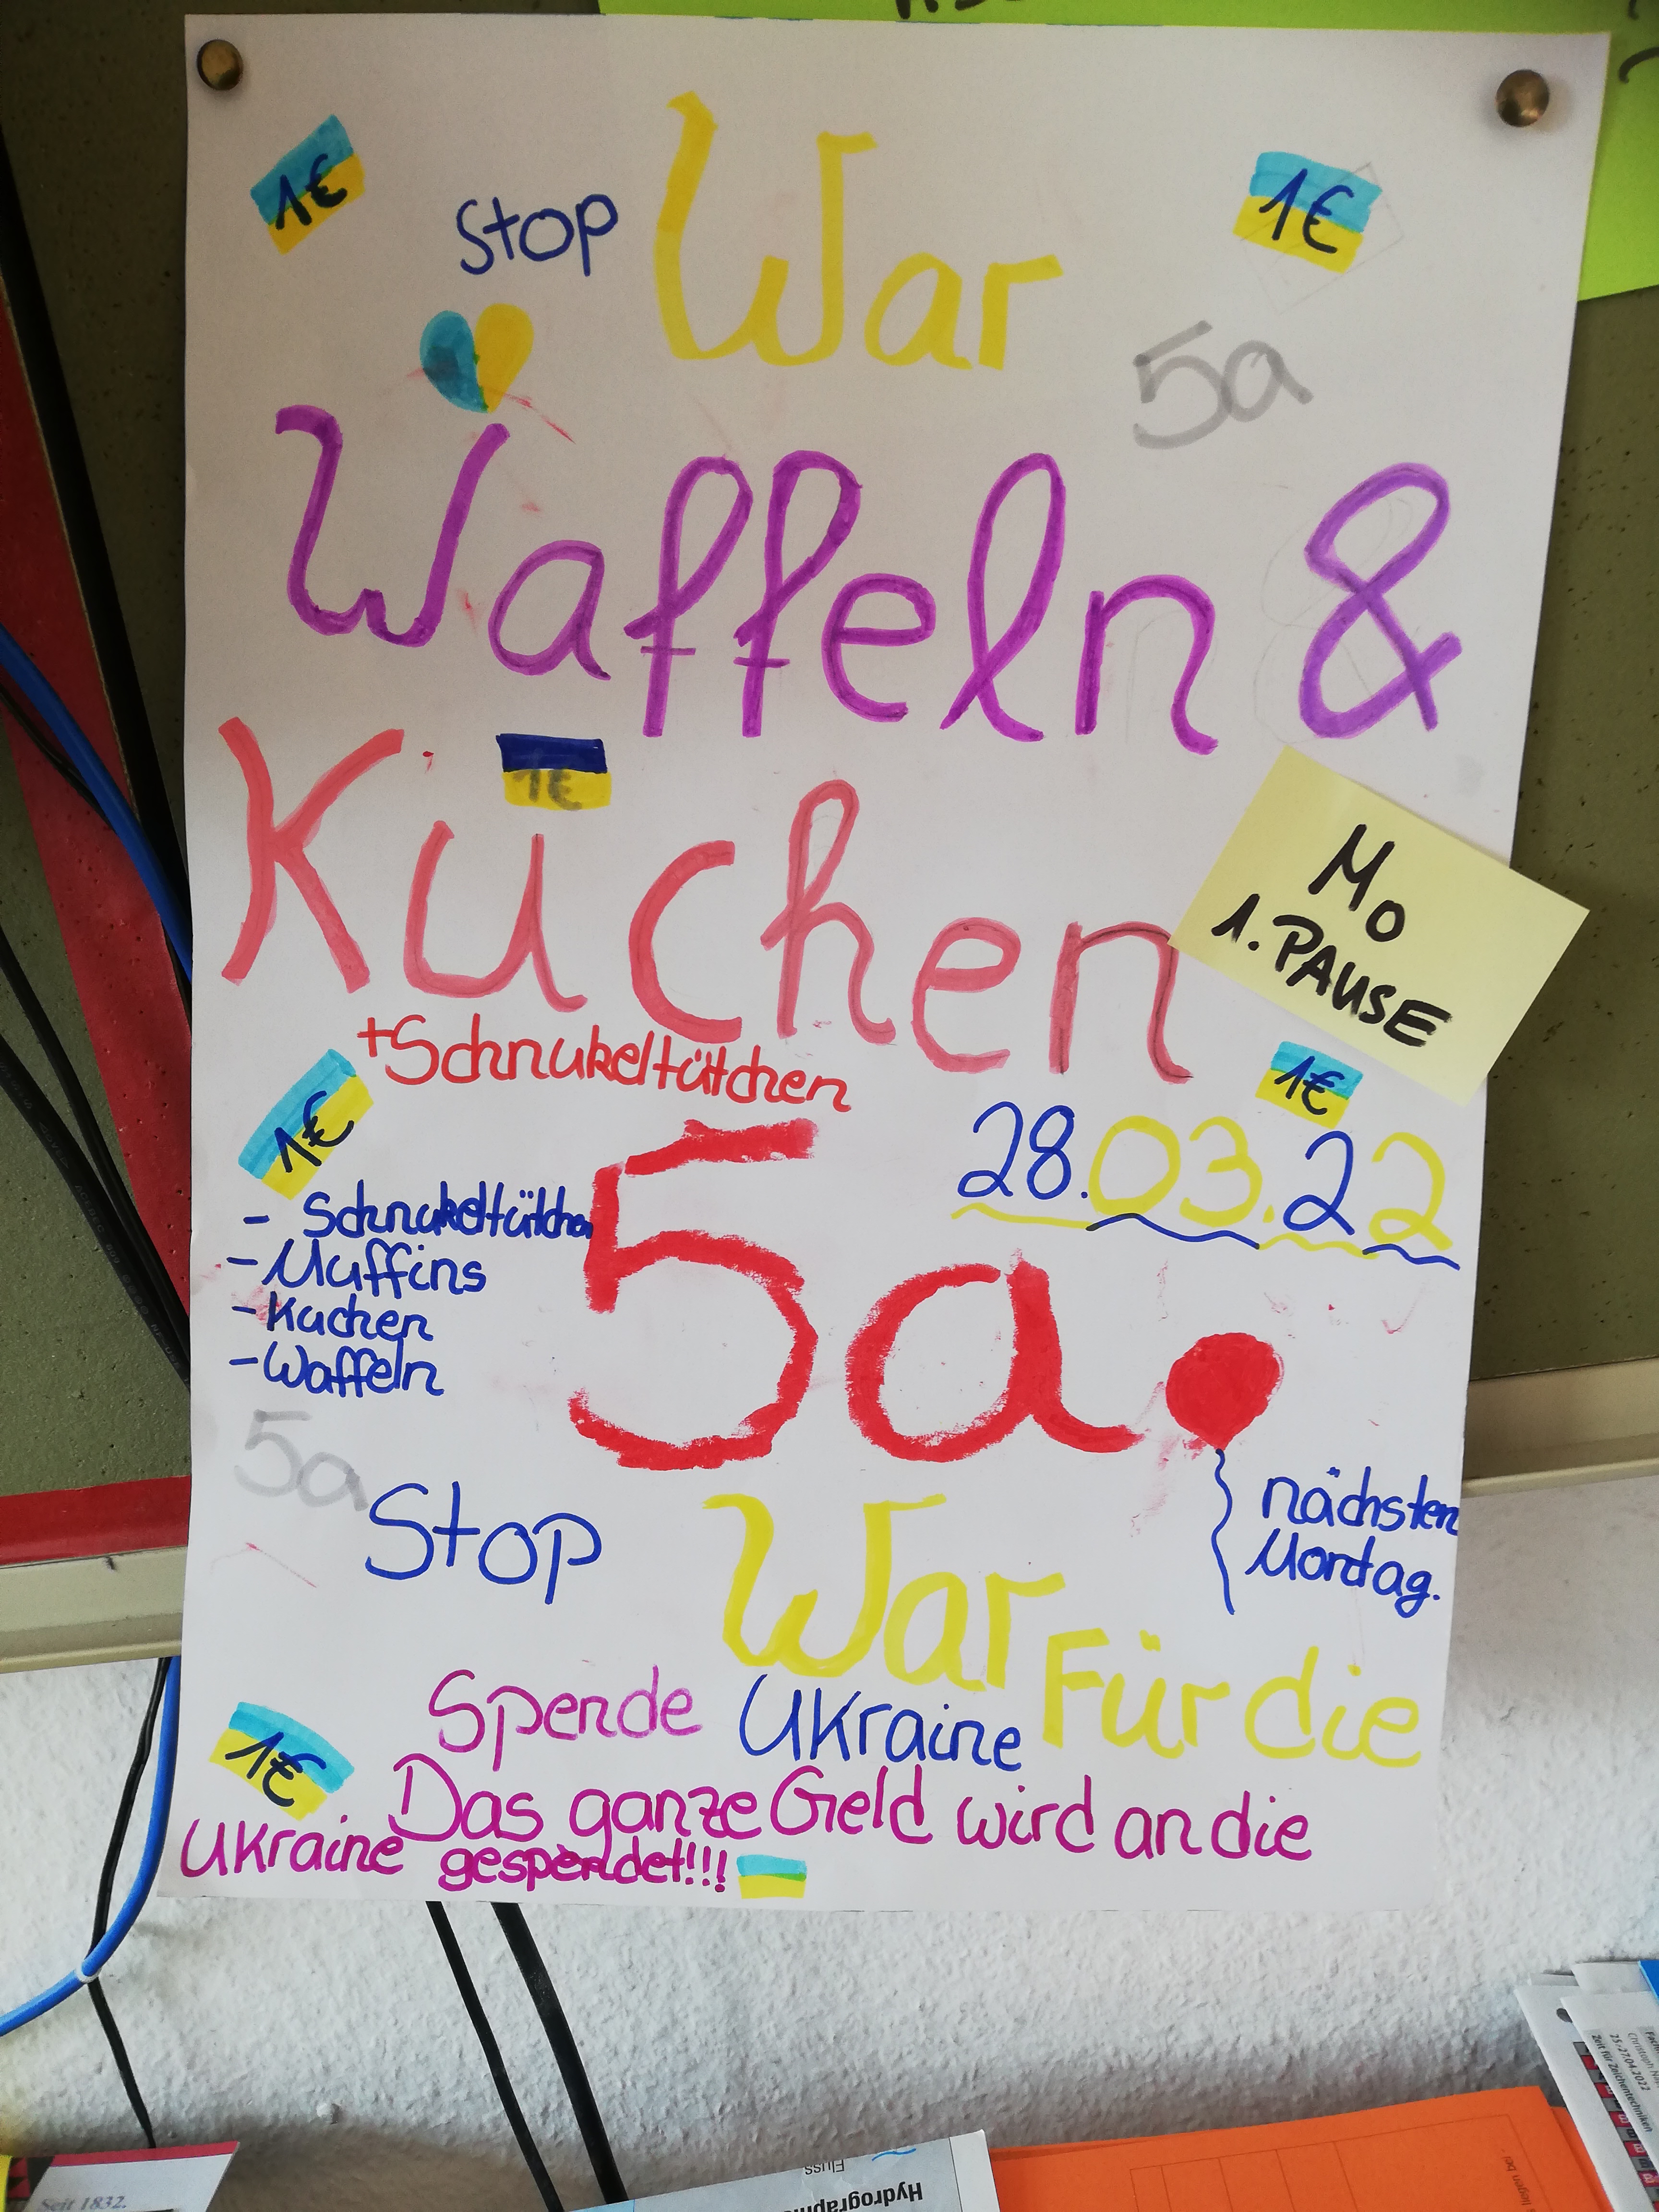 1€
1€
Stop War
5a
Waffeln &
1€
Kuchen
Mo
1. PAUSE
+Schnukeltüttchen
1€
1€
28.03.22
- Schnukeltüttchen
- Muffins
- Kuchen
- Waffeln
5a.
5a
Stop War
nächsten
Montag.
Für die
Spende Ukraine
1€
Das ganze Geld wird an die
Ukraine gespendet!!!
Seit 1832.
Fluss
Christoph
25.-27.04.2022
Zeit für Zeichentechniken